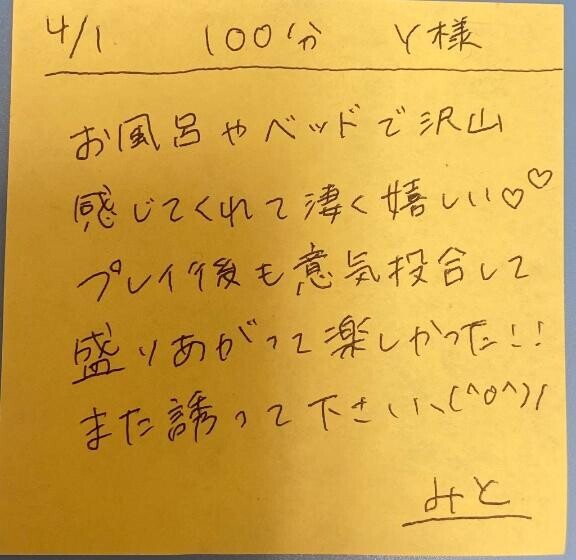 4/1 100分 Y様
お風呂やベッドで沢山
感じてくれて凄く嬉しい♡♡
プレイ後も意気投合して
盛りあがって楽しかった!!
また誘って下さい、(^o^)/
みと